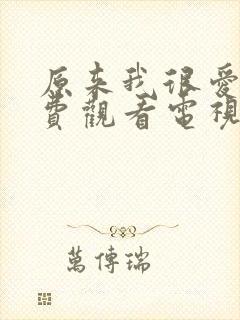 原来我很爱
費觀看電視
萬傳瑞